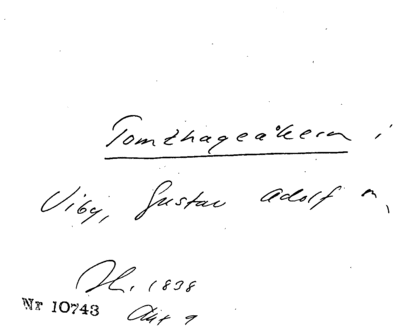 Tomthageåkern i
Viby, Gustav Adolf
1838
Nr 10743 Akt 9